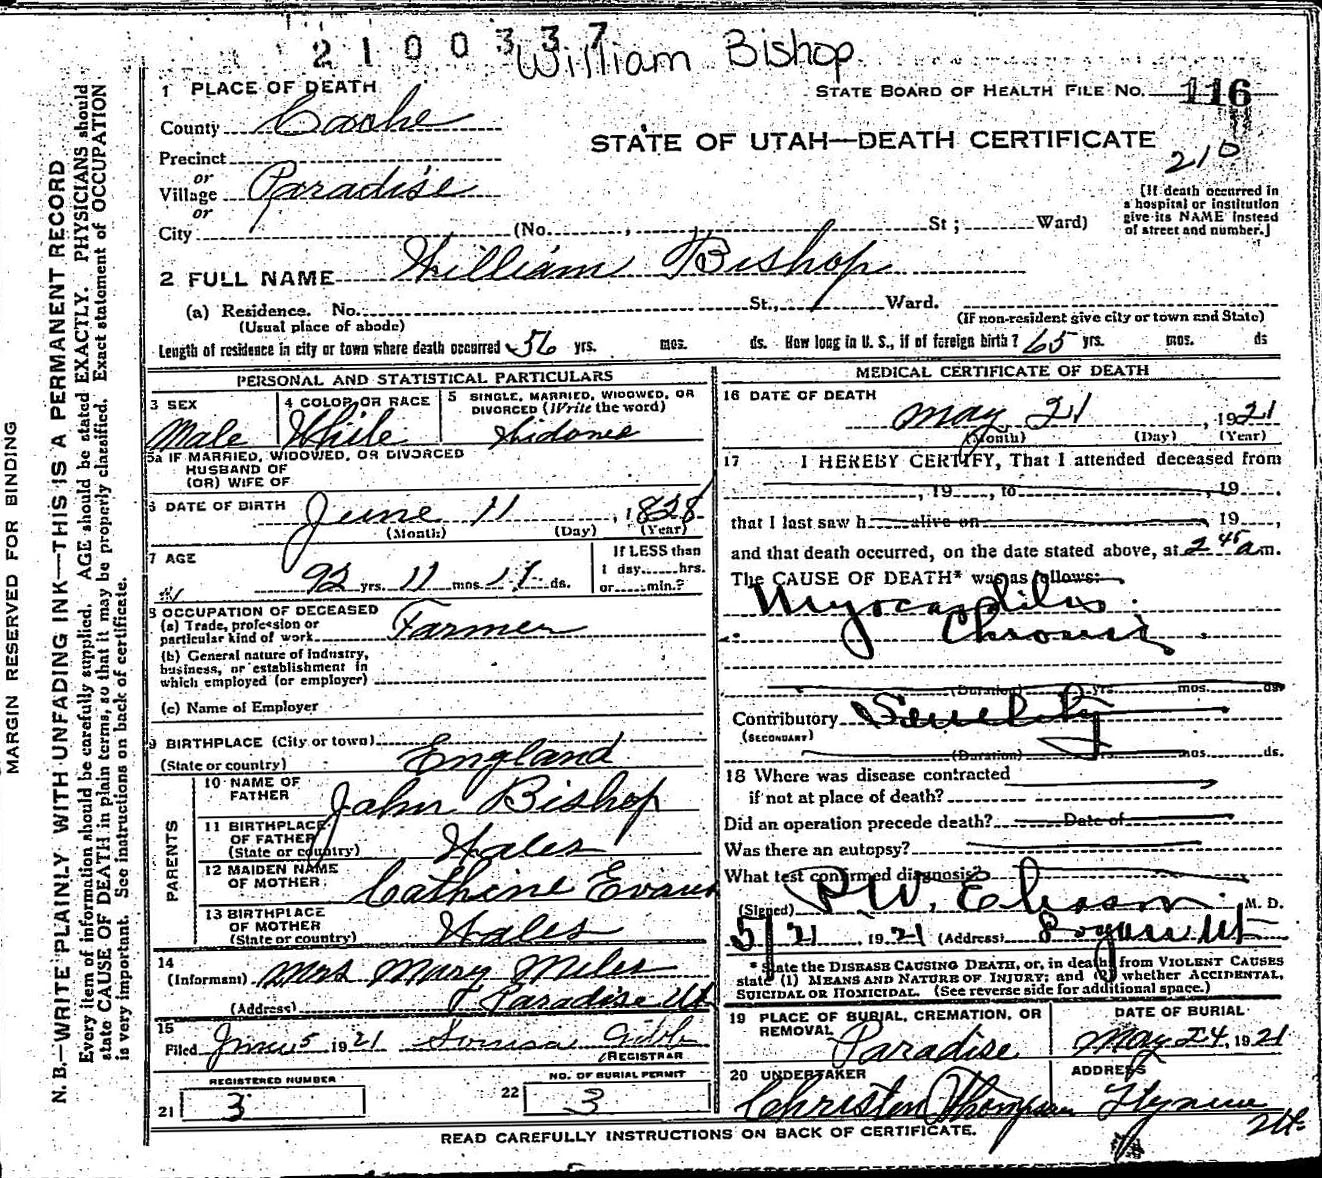 2100337
William Bishop
1 PLACE OF DEATH
STATE BOARD OF HEALTH FILE NO. 116
County Cache
STATE OF UTAH—DEATH CERTIFICATE
210
Precinct
or
Village Paradise
or
City (No. , St ; Ward)
[If death occurred in
a hospital or institution
give its NAME instead
of street and number.]
2 FULL NAME William Bishop
(a) Residence. No. St., Ward.
(Usual place of abode)
(If non-resident give city or town and State)
Length of residence in city or town where death occurred 56 yrs. mos. ds. How long in U. S., if of foreign birth? 65 yrs. mos. ds
PERSONAL AND STATISTICAL PARTICULARS
3 SEX
Male
4 COLOR OR RACE
White
5 SINGLE, MARRIED, WIDOWED, OR
DIVORCED (Write the word)
Widowed
5a IF MARRIED, WIDOWED, OR DIVORCED
HUSBAND OF
(OR) WIFE OF
6 DATE OF BIRTH June 11, 1828
(Month) (Day) (Year)
7 AGE
92 yrs. 11 mos. ds.
If LESS than
1 day hrs.
or min.?
8 OCCUPATION OF DECEASED
(a) Trade, profession or
particular kind of work Farmer
(b) General nature of industry,
business, or establishment in
which employed (or employer)
(c) Name of Employer
9 BIRTHPLACE (City or town)
(State or country) England
PARENTS
10 NAME OF
FATHER John Bishop
11 BIRTHPLACE
OF FATHER
(State or country) Wales
12 MAIDEN NAME
OF MOTHER Cathine Evans
13 BIRTHPLACE
OF MOTHER
(State or country) Wales
14
(Informant) Mrs Mary Miles
(Address) Paradise Ut
15
Filed June 5 1921
REGISTRAR
REGISTERED NUMBER
21 3
NO. OF BURIAL PERMIT
22 3
MEDICAL CERTIFICATE OF DEATH
16 DATE OF DEATH
May 21, 1921
(Month) (Day) (Year)
17 I HEREBY CERTIFY, That I attended deceased from
, 19 , to , 19 ,
that I last saw h alive on , 19 ,
and that death occurred, on the date stated above, at 2 45 a m.
The CAUSE OF DEATH* was as follows:
Myocarditis
Chronic
(Duration) yrs. mos. ds.
Contributory Senility
(SECONDARY)
(Duration) mos. ds.
18 Where was disease contracted
if not at place of death?
Did an operation precede death? Date of
Was there an autopsy?
What test confirmed diagnosis?
(Signed) P W. M. D.
5/21, 1921 (Address) Logan Ut
* State the DISEASE CAUSING DEATH, or, in deaths from VIOLENT CAUSES
state (1) MEANS AND NATURE OF INJURY; and (2) whether ACCIDENTAL,
SUICIDAL OR HOMICIDAL. (See reverse side for additional space.)
19 PLACE OF BURIAL, CREMATION, OR
REMOVAL
Paradise
DATE OF BURIAL
May 24, 1921
20 UNDERTAKER
Christen Thompson
ADDRESS
Hyrum
Ut.
READ CAREFULLY INSTRUCTIONS ON BACK OF CERTIFICATE.
MARGIN RESERVED FOR BINDING
N. B.—WRITE PLAINLY WITH UNFADING INK—THIS IS A PERMANENT RECORD
Every item of information should be carefully supplied. AGE should be stated EXACTLY. PHYSICIANS should
state CAUSE OF DEATH in plain terms, so that it may be properly classified. Exact statement of OCCUPATION
is very important. See instructions on back of certificate.